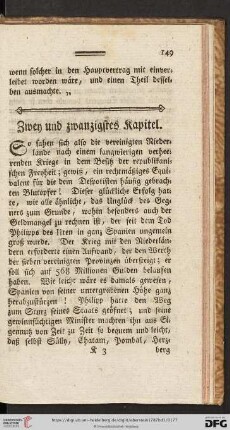 149
wenn solcher in den Hauptvertrag mit einver-
leibet worden wäre, und einen Theil dessel-
ben ausmachte. „
Zwey und zwanzigstes Kapitel.
So sahen sich also die vereinigten Nieder-
lande nach einem langwierigen verhee-
renden Kriege in dem Besitz der republikani-
schen Freyheit; gewis, ein rechtmäßiges Equi-
valent für die dem Despotisten häufig gebrach-
ten Blutopfer! Dieser glückliche Erfolg hat-
te, wie alle ähnliche, das Unglück des Geg-
ners zum Grunde, wohin besonders auch der
Geldmangel zu rechnen ist, der seit dem Tod
Philipps des IIten in ganz Spanien ungemein
groß wurde. Der Krieg mit den Niederlän-
dern erforderte einen Aufwand, der den Werth
der sieben vereinigten Provinzen übersteigt; er
soll sich auf 568 Millionen Gulden belaufen
haben. Wie leicht wäre es damals gewesen,
Spanien von seiner untergrabenen Höhe ganz
herabzustürzen! Philipp hatte den Weg
zum Sturz seines Staats geöfnet; und seine
gewinnsüchtigen Minister machten ihn aus Ei-
gennutz von Zeit zu Zeit so bequem und leicht,
daß selbst Sülly, Chatam, Pombal, Herz-
K 3 berg
DFG